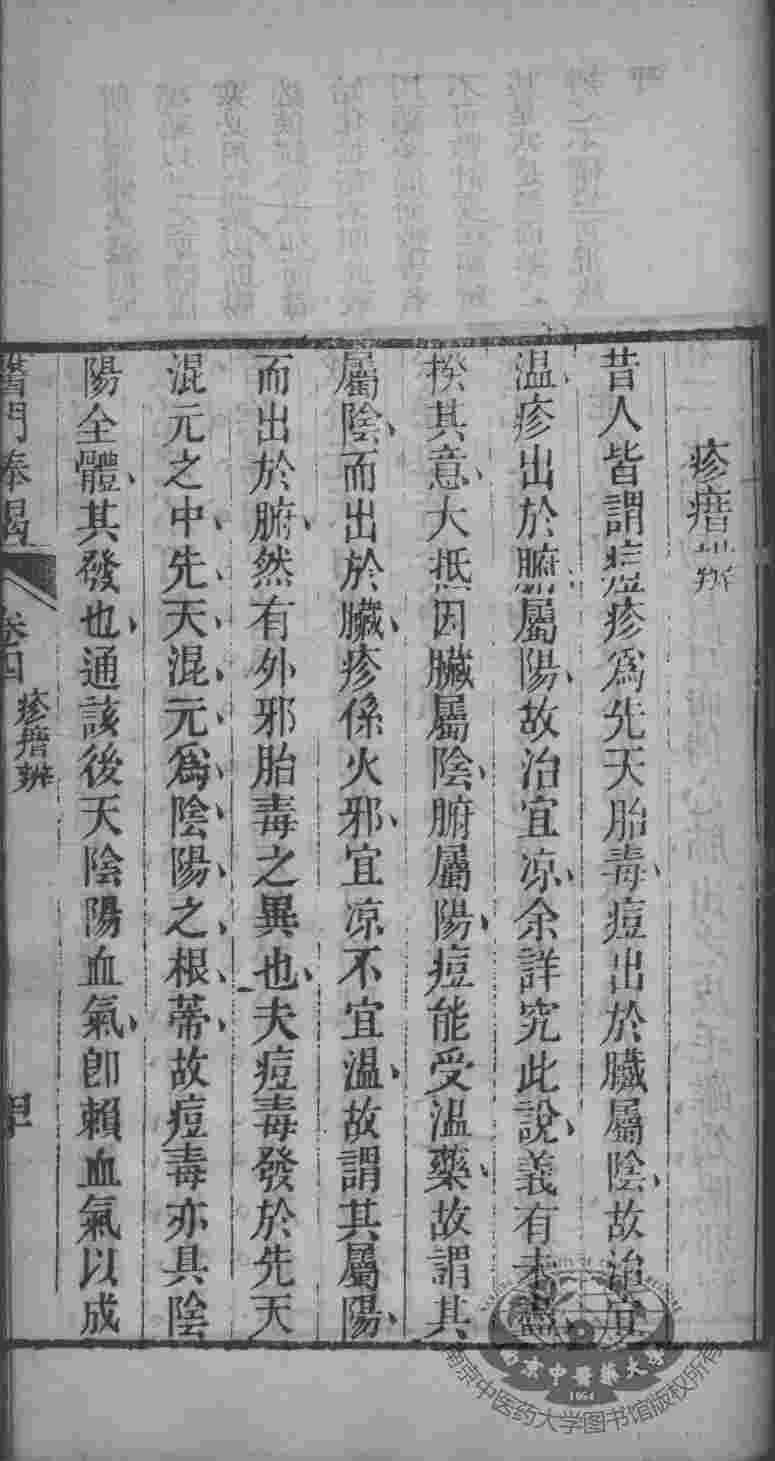 疹瘄辨
昔人皆謂痘疹爲先天胎毒痘出於臟屬陰故治宜
温疹出於腑屬陽故治宜凉余詳究此説義有未盡
揆其意大抵因臟屬陰腑屬陽痘能受温藥故謂其
屬陰而出於臟疹係火邪宜凉不宜温故謂其屬陽
而出於腑然有外邪胎毒之異也夫痘毒發於先天
混元之中先天混元爲陰陽之根蒂故痘毒亦具陰
陽全體其發也通該後天陰陽血氣卽賴血氣以成
醫門棒喝
卷四
疹瘄辨
南京中医药大学图书馆版权所有
南京中醫藥大學
1954